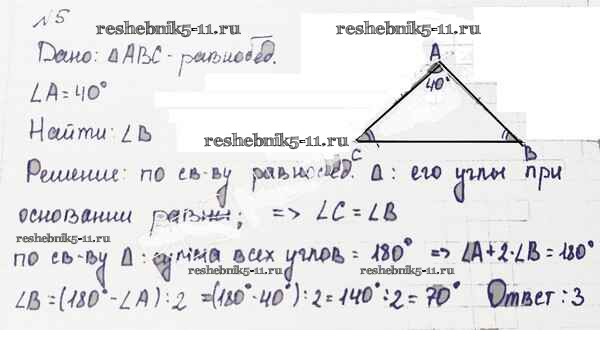 №5
reshebnik5-11.ru
reshebnik5-11.ru
Дано: ΔABC - равнобед.
∠A = 40°
Найти: ∠B
A
40°
C
B
reshebnik5-11.ru
Решение: по св-ву равнобед. Δ: его углы при
основании равны; => ∠C = ∠B
reshebnik5-11.ru
по св-ву Δ: сумма всех углов = 180° => ∠A + 2·∠B = 180°
reshebnik5-11.ru
reshebnik5-11.ru
∠B = (180° - ∠A) : 2 = (180° - 40°) : 2 = 140° : 2 = 70° Ответ: 3